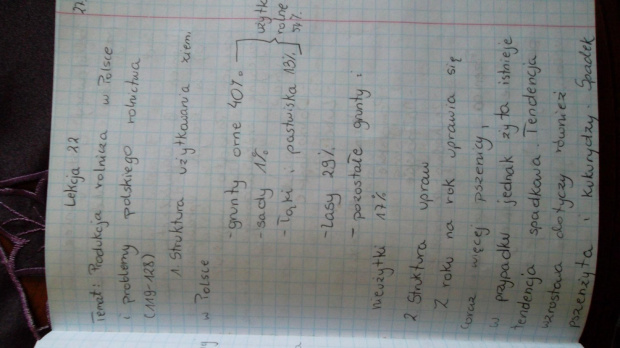 27.
Lekcja 22
Temat: Produkcja rolnicza w Polsce
i problemy polskiego rolnictwa
(119-128)
1. Struktura użytkowania ziem.
w Polsce
- grunty orne 40%
- sady 1%
- łąki i pastwiska 13%
użytk
rolne
54%
- lasy 29%
- pozostałe grunty i
nieużytki 17%
2 Struktura upraw
Z roku na rok uprawia się
coraz więcej pszenicy,
w przypadku jednak żyta istnieje
tendencja spadkowa. Tendencja
wzrostowa dotyczy również
pszenżyta i kukurydzy. Spadek